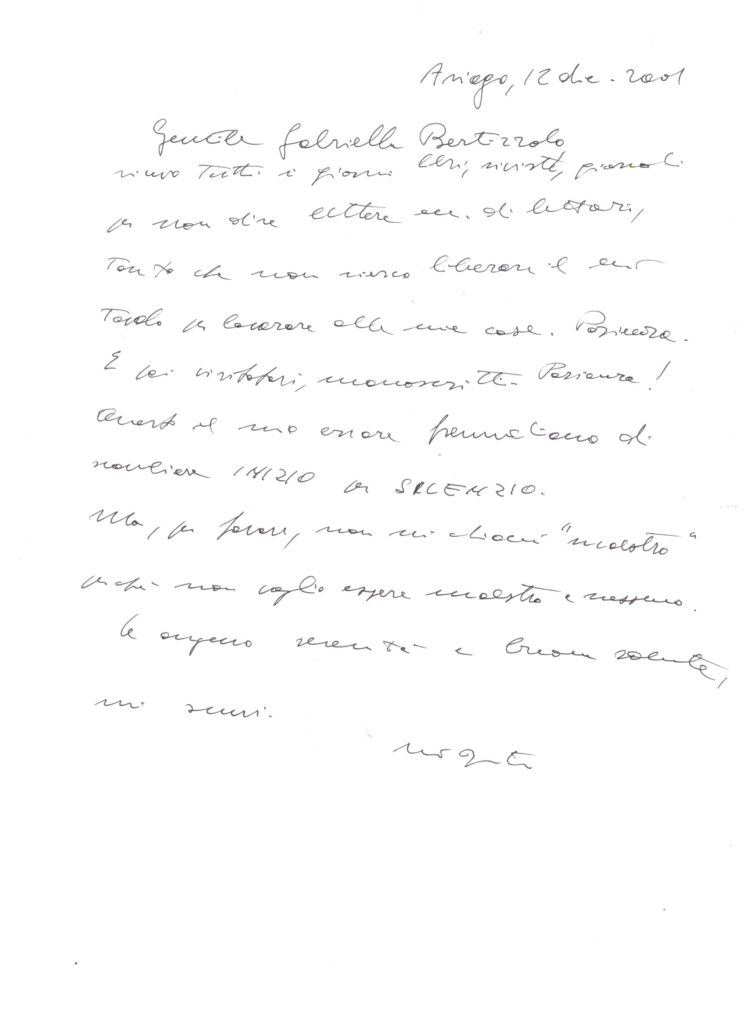 Asiago, 12 dic. 2001
Gentile Gabriella Bertizzolo
ricevo tutti i giorni libri, riviste, giornali
per non dire lettere ecc. di lettori,
tanto che non riesco liberare il mio
tavolo per lavorare alle mie cose. Pazienza.
E poi visitatori, manoscritti. Pazienza!
Questo il mio essere
INIZIO per SILENZIO.
Ma, per favore, non mi chiami "maestro"
perché non voglio essere maestro a nessuno.
Le auguro serenità e buona salute,
mi scusi.